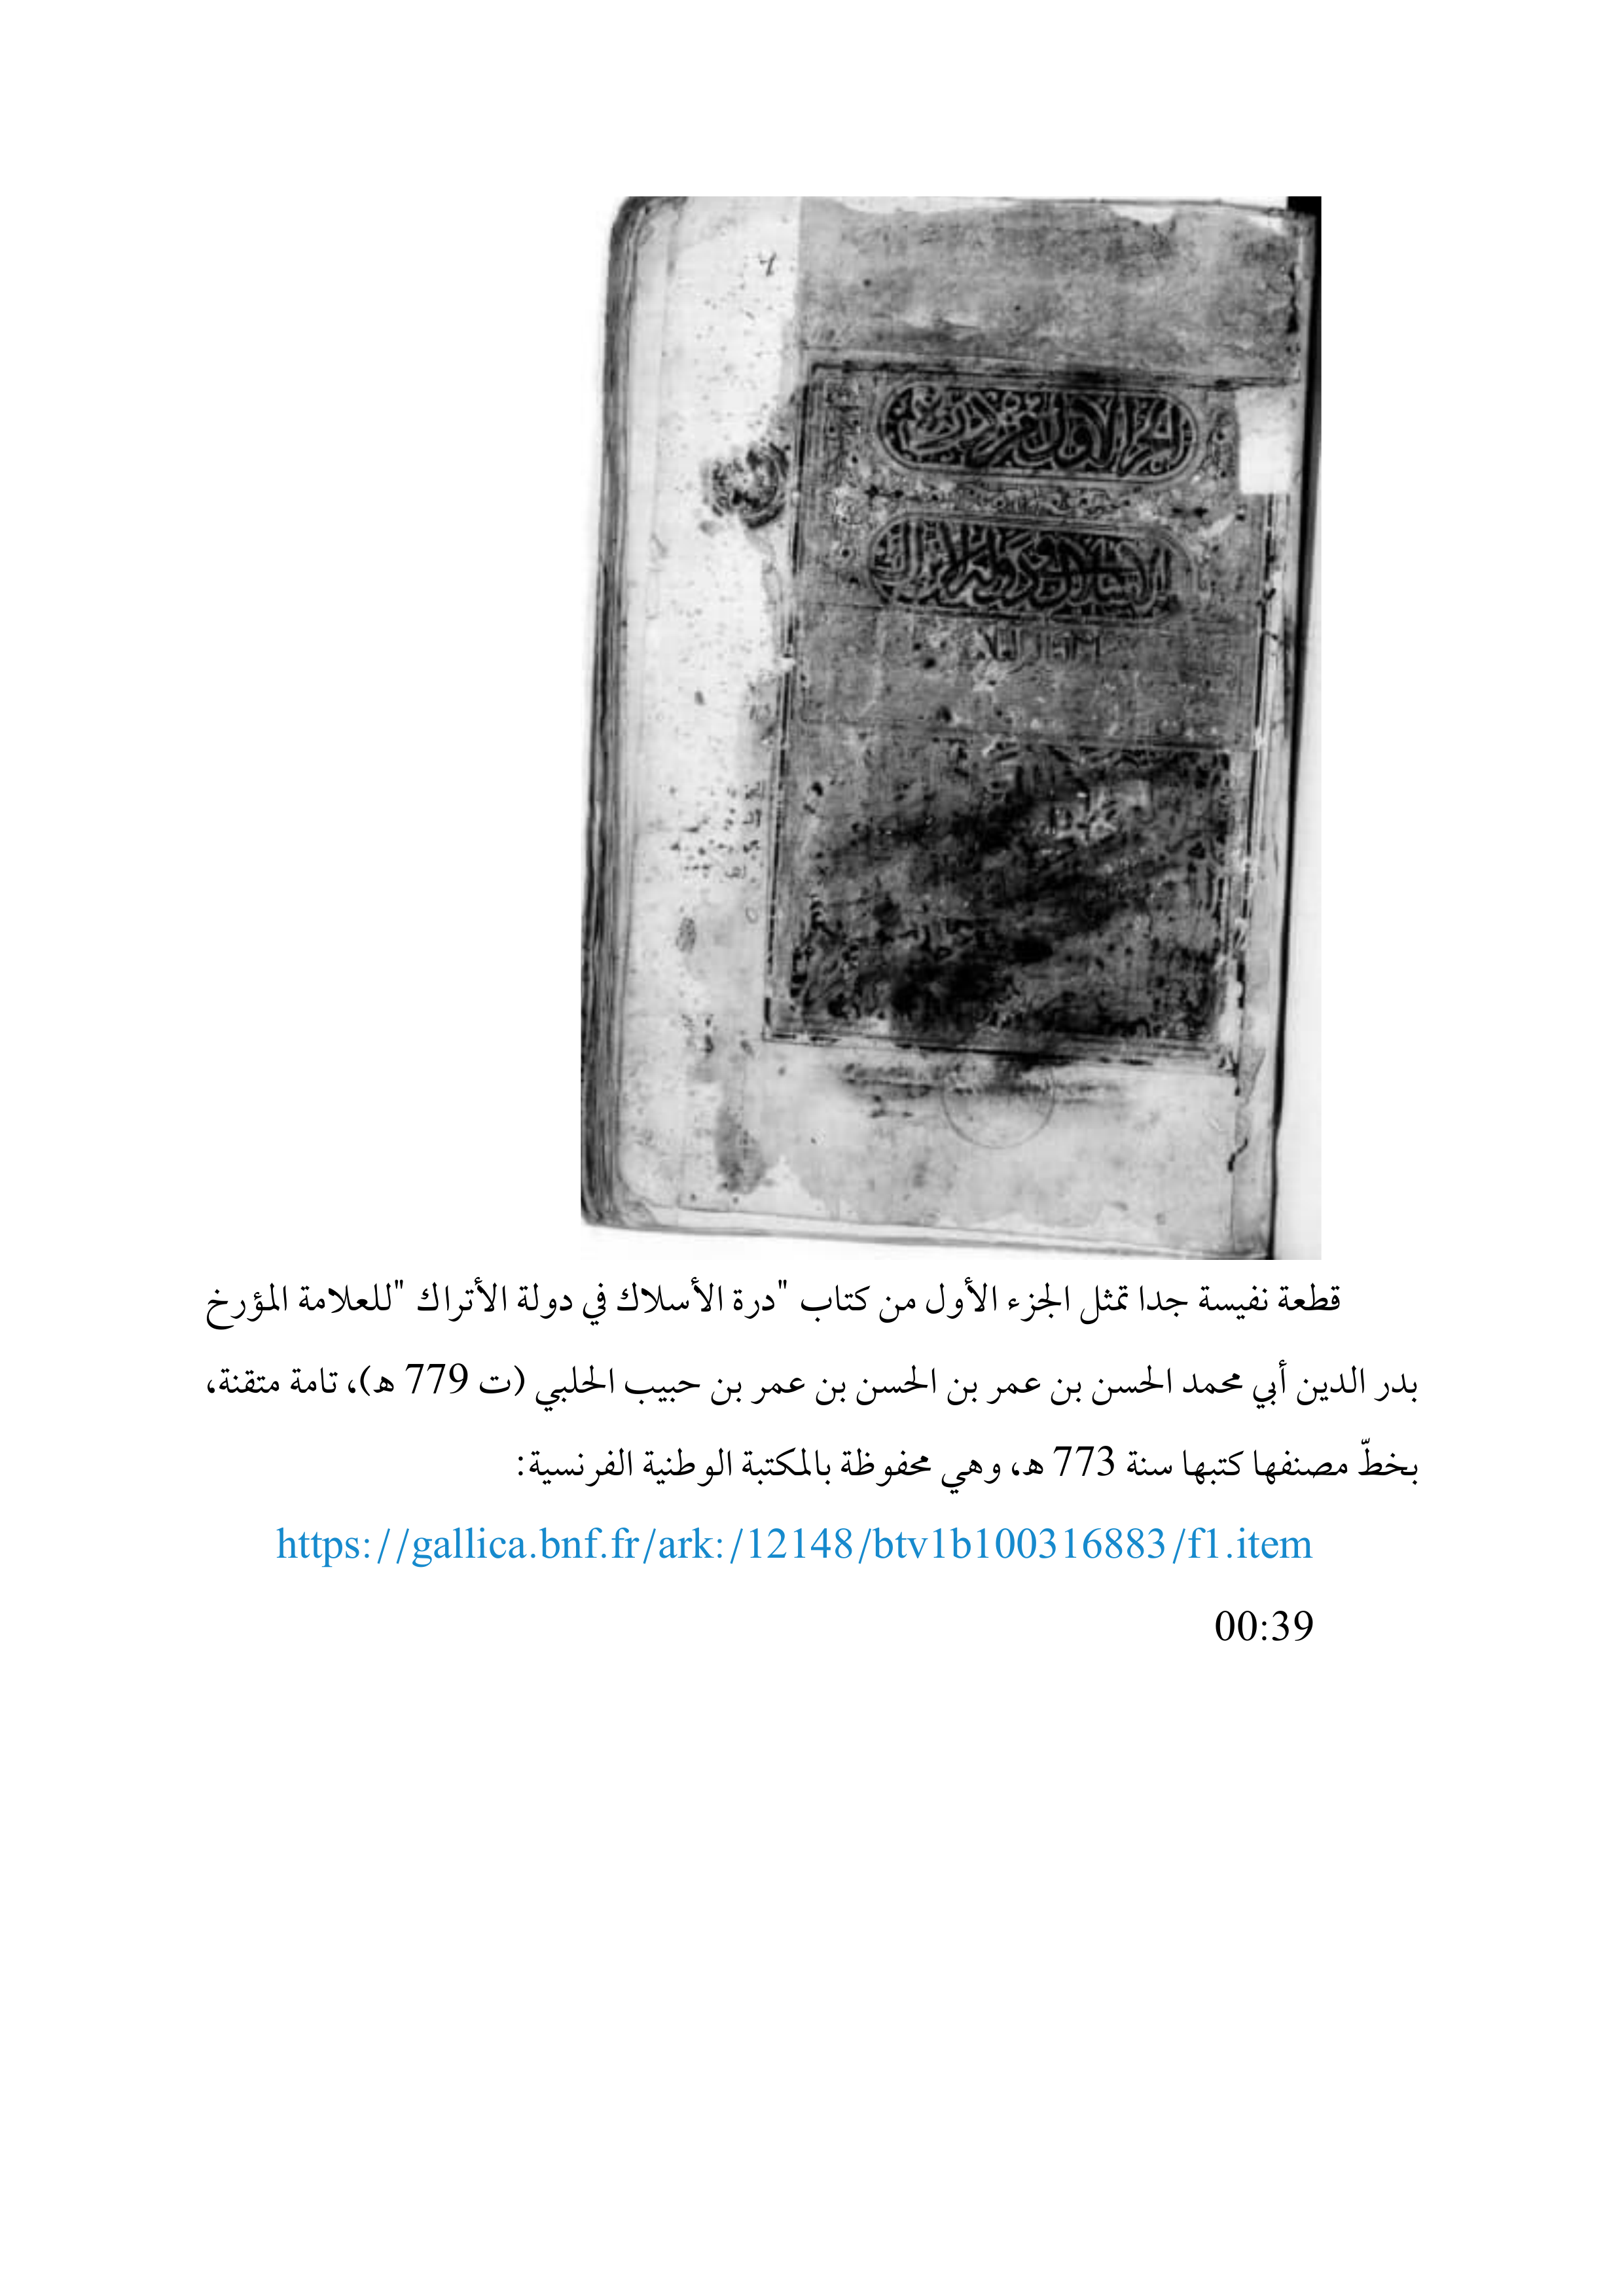 الجزء الأول من درة
الأسلاك في دولة الأتراك
قطعة نفيسة جدا تمثل الجزء الأول من كتاب "درة الأسلاك في دولة الأتراك "للعلامة المؤرخ
بدر الدين أبي محمد الحسن بن عمر بن الحسن بن عمر بن حبيب الحلبي (ت 779 هـ)، تامة متقنة،
بخطّ مصنفها كتبها سنة 773 هـ، وهي محفوظة بالمكتبة الوطنية الفرنسية:
https://gallica.bnf.fr/ark:/12148/btv1b100316883/f1.item
00:39